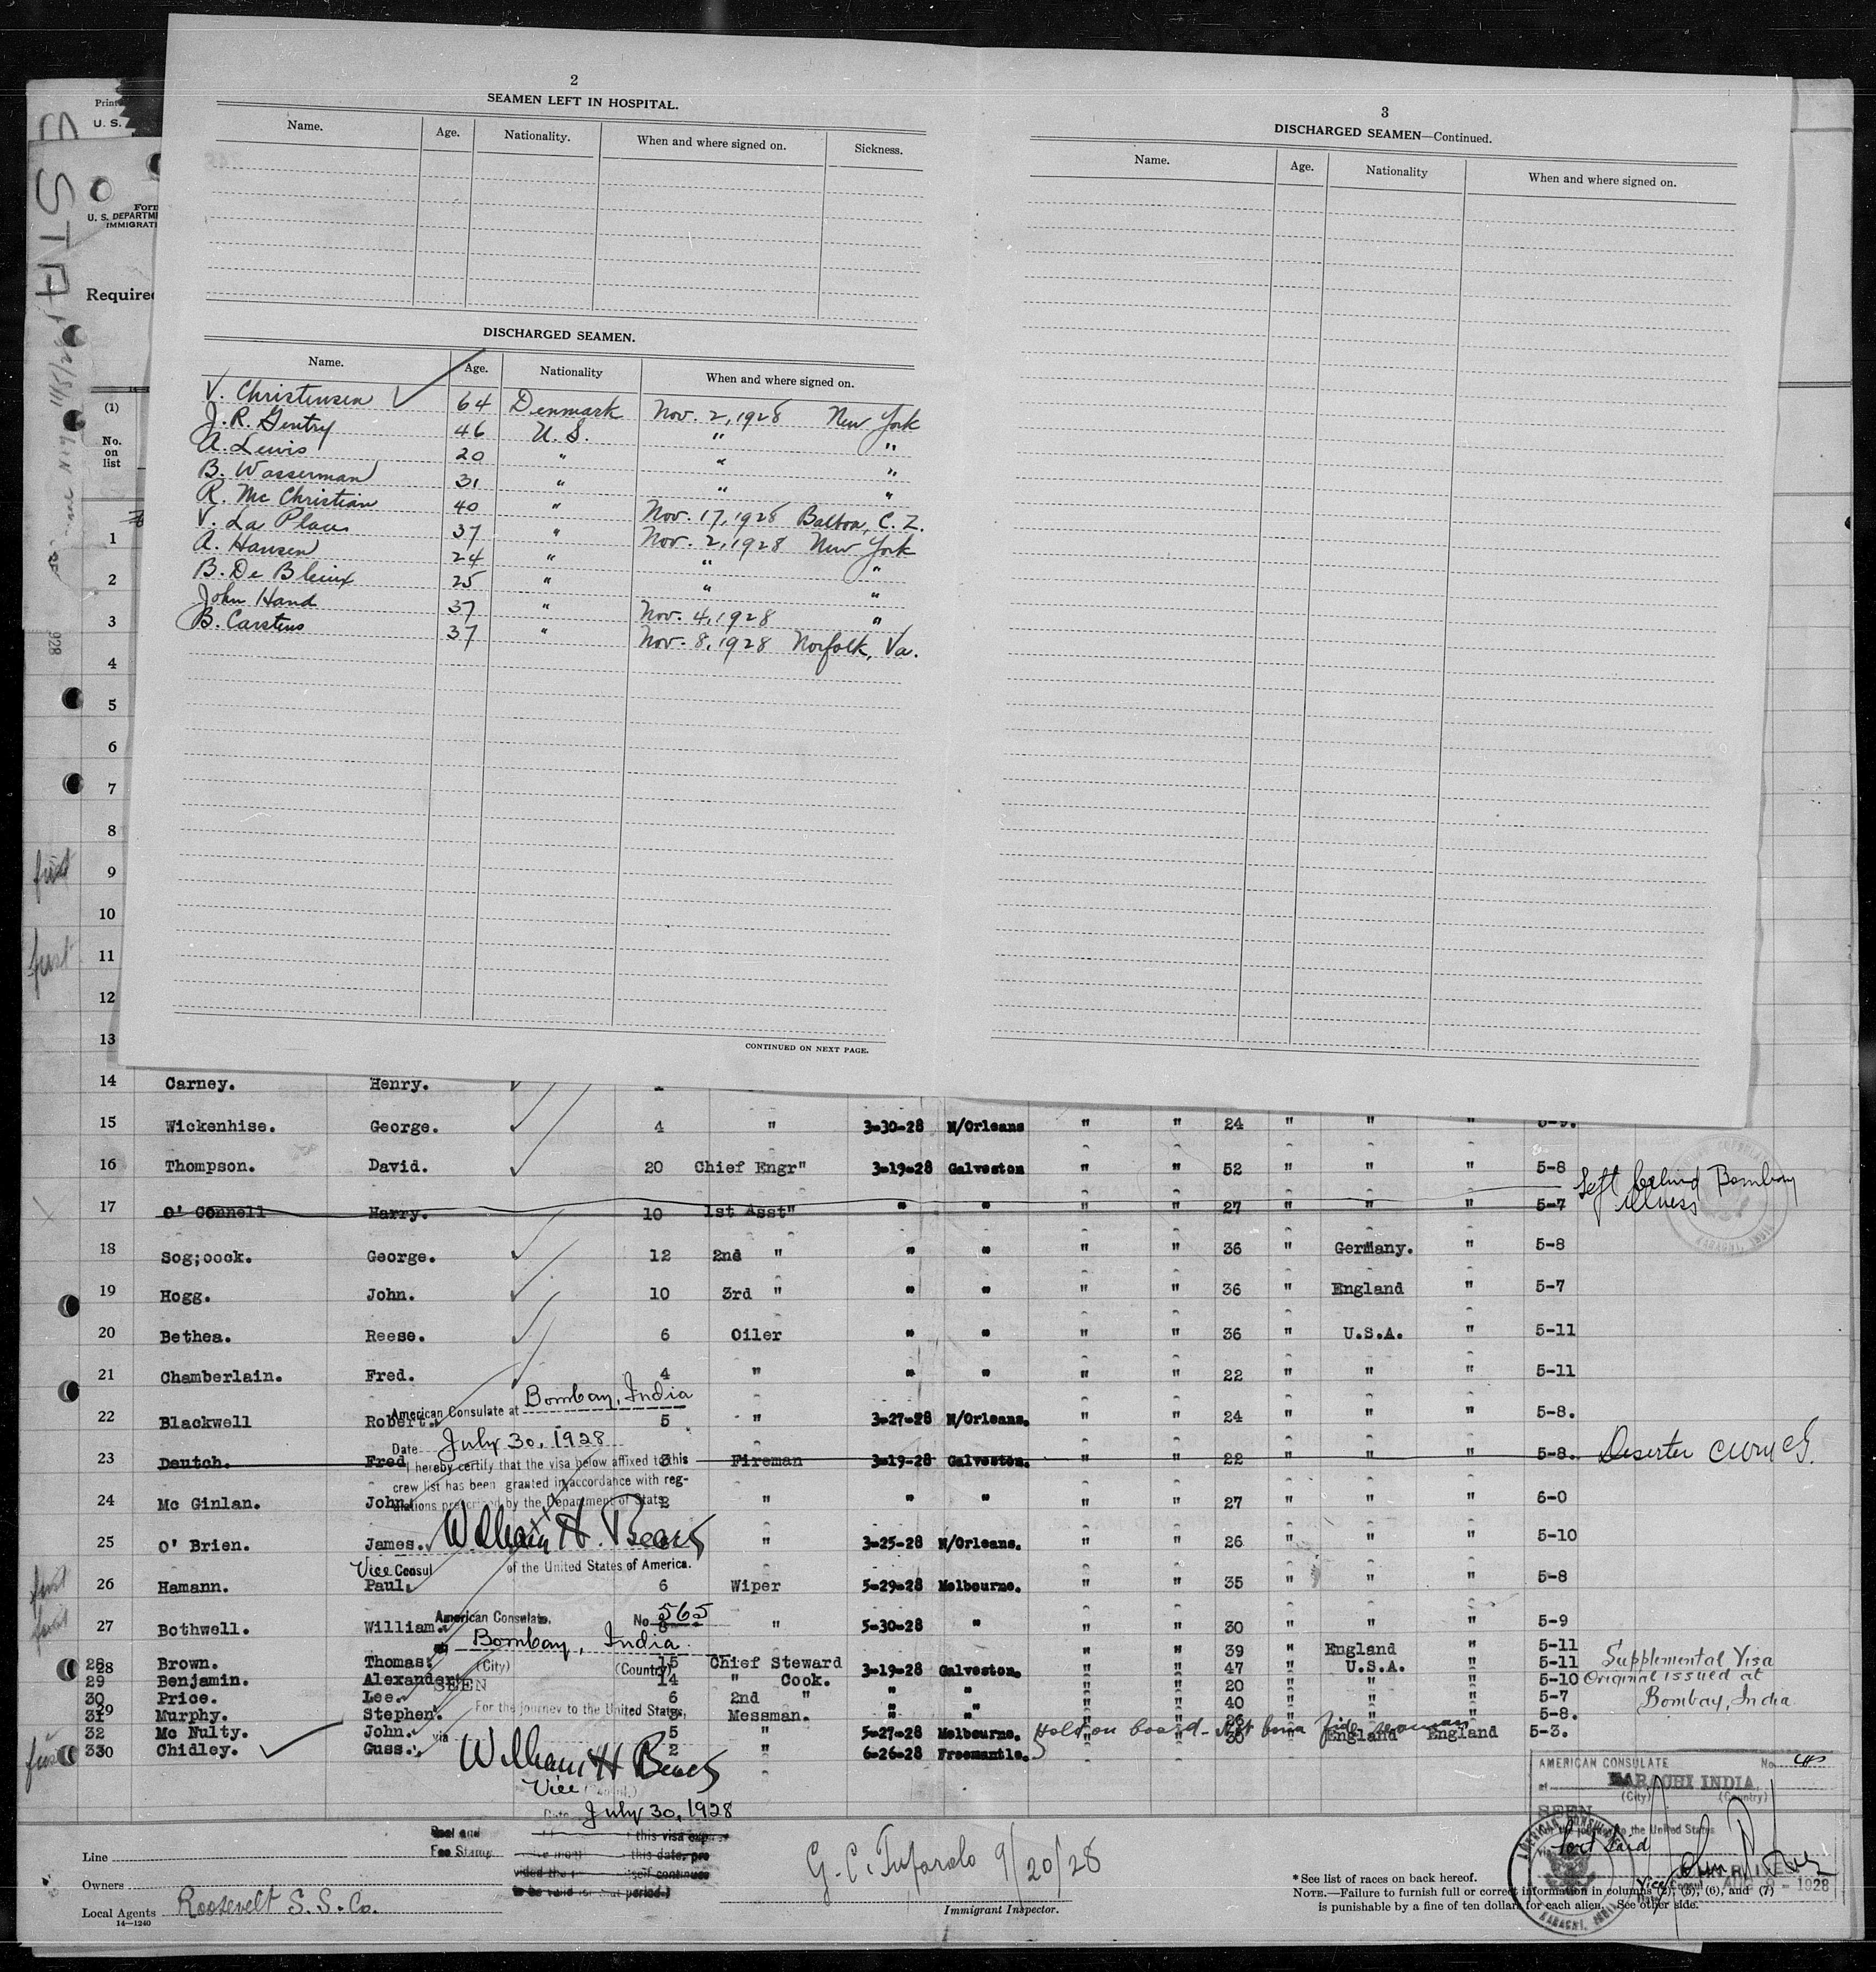 2
SEAMEN LEFT IN HOSPITAL.
Name. Age. Nationality. When and where signed on. Sickness.
DISCHARGED SEAMEN.
Name. Age. Nationality When and where signed on.
V. Christensen 64 Denmark Nov. 2, 1928 New York
J. R. Gentry 46 U. S. " "
A. Lewis 20 " " "
B. Wasserman 31 " " "
R. Mc Christian 40 " Nov. 17, 1928 Balboa, C. Z.
V. La Place 37 " Nov. 2, 1928 New York
A. Hansen 24 " " "
B. De 25 " " "
John Hand 37 " Nov. 4, 1928 "
B. Carstens 37 " Nov. 8, 1928 Norfolk, Va.
CONTINUED ON NEXT PAGE.
3
DISCHARGED SEAMEN—Continued.
Name. Age. Nationality When and where signed on.
Print
U. S.
Form
U. S. DEPARTME
IMMIGRATI
Required
(1)
No.
on
list
1
2
3
4
5
6
7
8
first 9
10
first 11
12
13
14 Carney. Henry.
15 Wickenhise. George. 4 " 3-30-28 N/Orleans " " 24 " " " 5-9.
16 Thompson. David. 20 Chief Engr" 3-19-28 Galveston " " 52 " " " 5-8
17 O' Connell Harry. 10 1st Asst" " " " " 27 " " " 5-7 Left behind Bombay
illness
18 Sog;oock. George. 12 2nd " " " " " 36 " Germany. " 5-8
19 Hogg. John. 10 3rd " " " " " 36 " England " 5-7
20 Bethea. Reese. 6 Oiler " " " " 36 " U.S.A. " 5-11
21 Chamberlain. Fred. 4 " " " " " 22 " " " 5-11
American Consulate at Bombay, India
22 Blackwell Robert. 5 " 3-27-28 N/Orleans. " " 24 " " " 5-8.
Date July 30, 1928
23 Deutch. Fred 3 Fireman 3-19-28 Galveston. " " 22 " " " 5-8. Deserter
I hereby certify that the visa below affixed to this
crew list has been granted in accordance with reg-
ulations prescribed by the Department of State
24 Mc Ginlan. John. 2 " " " " " 27 " " " 6-0
25 O' Brien. James. " 3-25-28 N/Orleans. " " 26 " " " 5-10
William H. Beach
Vice Consul of the United States of America.
26 Hamann. Paul. 6 Wiper 5-29-28 Melbourne. " " 35 " " " 5-8
American Consulate. No. 565
27 Bothwell. William. 8 " 5-30-28 " " " 30 " " " 5-9
Bombay, India
(City) (Country)
28 Brown. Thomas. 15 Chief Steward 3-19-28 Galveston. " " 39 " England " 5-11
29 Benjamin. Alexander. 14 " Cook. " " " " 47 " U.S.A. " 5-11
30 Price. Lee. 6 2nd " " " " " 20 " " " 5-10
31 Murphy. Stephen. Messman. " " " " 40 " " " 5-7
32 Mc Nulty. John. 5 " 5-27-28 Melbourne. " " 26 " " " 5-8.
33 Chidley. Guss. 2 " 6-26-28 Freemantle. " " 30 " England England 5-3.
Hold on board - Not bona fide seaman
Supplemental Visa
Original issued at
Bombay, India
SEEN
For the journey to the United States,
via
William H Beach
Vice
Date July 30, 1928
Seal and
Fee Stamp
this visa
this date, pro
vided the
to be valid for that period.)
AMERICAN CONSULATE No.
at KARACHI INDIA
(City) (Country)
SEEN
For the journey to the United States
via Port Said
Vice Consul
AUG 8 - 1928
AMERICAN CONSULATE
KARACHI, INDIA
Line
Owners
Local Agents Roosevelt S. S. Co.
14—1240
G. C. Tufarolo 9/20/28
Immigrant Inspector.
* See list of races on back hereof.
NOTE.—Failure to furnish full or correct information in columns (2), (5), (6), and (7)
is punishable by a fine of ten dollars for each alien. See other side.